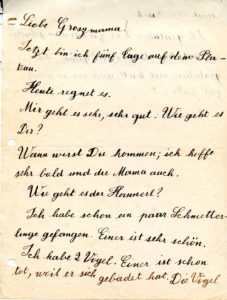 Liebe Grosymama!
Jetzt bin ich fünf Tage auf dem
Heute regnet es.
Mir geht es sehr, sehr gut. Wie geht es
Dir?
Wann wirst Du kommen; ich hoffe
sehr bald und die Mama auch.
Wie geht es der Hannerl?
Ich habe schon ein paar Schmetter-
linge gefangen. Einer ist sehr schön.
Ich habe 2 Vögel. Einer ist schon
tot, weil er sich gebadet hat. Die Vögel